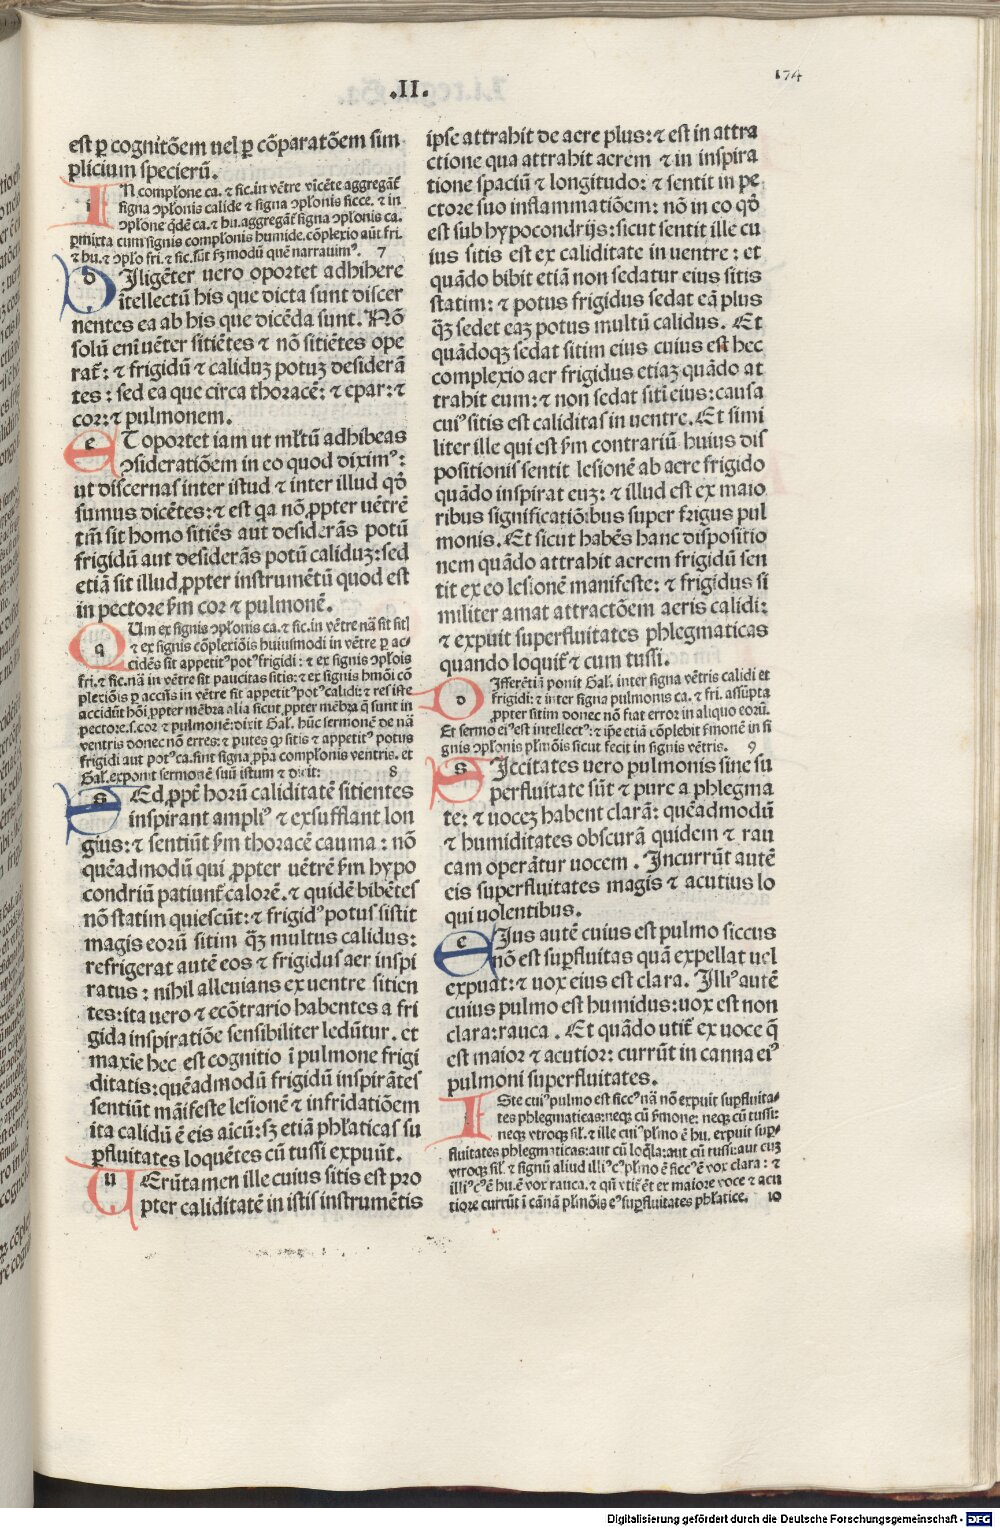 .II.
174
est ꝑ cognitõem uel ꝑ cõparatõem sim
plicium specierũ.
IN complone ca. ⁊ sic. in vẽtre vĩcẽte aggregãt̃
signa ɔplonis calide ⁊ signa ɔplonis sicce. ⁊ in
ɔplone q̃dẽ ca. ⁊ hu. aggregãt̃ signa ɔplonis ca.
ꝑmixta cum signis complonis humide. cõplexio aũt fri.
⁊ hu. ⁊ ɔplo fri. ⁊ sic. sũt ẜm modũ quẽ narrauimꝰ. 7
DIligẽter uero oportet adhibere
ĩtellectũ his que dicta sunt discer
nentes ea ab his que dicẽda sunt. Nõ
solũ enĩ uẽter sitiẽtes ⁊ nõ sitiẽtes ope
rat̃: ⁊ frigidũ ⁊ caliduꝫ potuꝫ desiderã
tes: sed ea que circa thoracẽ: ⁊ epar: ⁊
cor: ⁊ pulmonem.
ET oportet iam ut ml̃tũ adhibeas
ɔsideratiõem in eo quod diximꝰ:
ut discernas inter istud ⁊ inter illud qḋ
sumus dicẽtes: ⁊ est qa nõ ꝓpter uẽtrẽ
tm̃ sit homo sitiẽs aut desiderãs potũ
frigidũ aut desiderãs potũ caliduꝫ: sed
etiã sit illud ꝓpter instrumẽtũ quod est
in pectore ẜm cor ⁊ pulmonẽ.
QUm ex signis ɔplonis ca. ⁊ sic. in vẽtre nã sit sitꝭ
⁊ ex signis cõplexiõis huiusmodi in vẽtre ꝑ ac⸗
cidẽs sit appetitꝰ potꝰ frigidi: ⁊ ex signis ɔplois
fri. ⁊ sic. nã in vẽtre sit paucitas sitis: ⁊ ex signis hmõi cõ
plexiõis ꝑ accñs in vẽtre sit appetitꝰ potꝰ calidi: ⁊ res iste
accidũt hõi ꝓpter mẽbra alia sicut ꝓpter mẽbra q̃ sunt in
pectore. s. cor ⁊ pulmonẽ: dixit Gal. hũc sermonẽ de nã
ventris donec nõ erres: ⁊ putes ꝙ sitis ⁊ appetitꝰ potus
frigidi aut potꝰ ca. sint signa ꝓp̃a complonis ventris. et
Gal. exponit sermonẽ suũ istum ⁊ dicit: 8
SEd ꝓpt̃ horũ caliditatẽ sitientes
inspirant ampliꝰ ⁊ exsufflant lon
gius: ⁊ sentiũt ẜm thoracẽ cauma: nõ
quẽadmodũ qui ꝓpter uẽtrẽ ẜm hypo
condriũ patiunt̃ calorẽ. ⁊ quidẽ bibẽtes
nõ statim quiescũt: ⁊ frigidꝰ potus sistit
magis eorũ sitim q̃ꝫ multus calidus:
refrigerat autẽ eos ⁊ frigidus aer inspi
ratus: nihil alleuians ex uentre sitien
tes: ita uero ⁊ ecõtrario habentes a fri
gida inspiratiõe sensibiliter ledũtur. et
maxĩe hec est cognitio ĩ pulmone frigi
ditatis: quẽadmodũ frigidũ inspirãtes
sentiũt mãifeste lesionẽ ⁊ infridatiõem
ita calidũ ẽ eis aĩcũ: sꝫ etiã phl̃aticas su
ꝑfluitates loquẽtes cũ tussi expuũt.
UErũtamen ille cuius sitis est pro
pter caliditatẽ in istis instrumẽtis
ipse attrahit de aere plus: ⁊ est in attra
ctione qua attrahit aerem ⁊ in inspira
tione spaciũ ⁊ longitudo: ⁊ sentit in pe
ctore suo inflammatiõem: nõ in eo qḋ
est sub hypocondrijs: sicut sentit ille cu
ius sitis est ex caliditate in uentre: et
quãdo bibit etiã non sedatur eius sitis
statim: ⁊ potus frigidus sedat eã plus
q̃ꝫ sedet eaꝫ potus multũ calidus. Et
quãdoqꝫ sedat sitim eius cuius est hec
complexio aer frigidus etiaꝫ quãdo at
trahit eum: ⁊ non sedat sitĩ eius: causa
cuiꝰ sitis est caliditas in uentre. Et simi
liter ille qui est ẜm contrariũ huius dis
positionis sentit lesionẽ ab aere frigido
quãdo inspirat euꝫ: ⁊ illud est ex maio
ribus significatiõibus super frigus pul
monis. Et sicut habẽs hanc dispositio
nem quãdo attrahit aerem frigidũ sen
tit ex eo lesionẽ manifeste: ⁊ frigidus si
militer amat attractõem aeris calidi:
⁊ expuit superfluitates phlegmaticas
quando loquit̃ ⁊ cum tussi.
DIfferẽtiã ponit Gal. inter signa vẽtris calidi et
frigidi: ⁊ inter signa pulmonis ca. ⁊ fri. assũpta
ꝓpter sitim donec nõ fiat error in aliquo eorũ.
Et sermo eiꝰ est intellectꝰ: ⁊ ip̃e etiã cõplebit ẜmonẽ in si
gnis ɔplonis pl̃mõis sicut fecit in signis vẽtris. 9
SIccitates uero pulmonis sine su
perfluitate sũt ⁊ pure a phlegma
te: ⁊ uoceꝫ habent clarã: quẽadmodũ
⁊ humiditates obscurã quidem ⁊ rau
cam operãtur uocem. Incurrũt autẽ
eis superfluitates magis ⁊ acutius lo
qui uolentibus.
EIus autẽ cuius est pulmo siccus
nõ est suꝑfluitas quã expellat uel
expuat: ⁊ uox eius est clara. Illiꝰ autẽ
cuius pulmo est humidus: uox est non
clara: rauca. Et quãdo utit̃ ex uoce q̃
est maior ⁊ acutior: currũt in canna eiꝰ
pulmoni superfluitates.
ISte cuiꝰ pulmo est siccꝰ nã nõ expuit suꝑfluita⸗
tes phlegmaticas: neqꝫ cũ ẜmone: neqꝫ cũ tussi:
neqꝫ vtroqꝫ sil̃. ⁊ ille cuiꝰ pl̃mo ẽ hu. expuit suꝑ⸗
fluitates phlegmaticas: aut cũ loq̃la: aut cũ tussi: aut cuꝫ
vtroqꝫ sil̃. ⁊ signũ aliud illiꝰ cꝰ pl̃mo ẽ siccꝰ ẽ vox clara: ⁊
illiꝰ cꝰ ẽ hu. ẽ vox rauca. ⁊ qñ vtit̃ ẽt er maiore voce ⁊ acu
tiore currũt ĩ cãna pl̃mõis eꝰ suꝑfluitates phl̃atice. 10
Digitalisierung gefördert durch die Deutsche Forschungsgemeinschaft - DFG